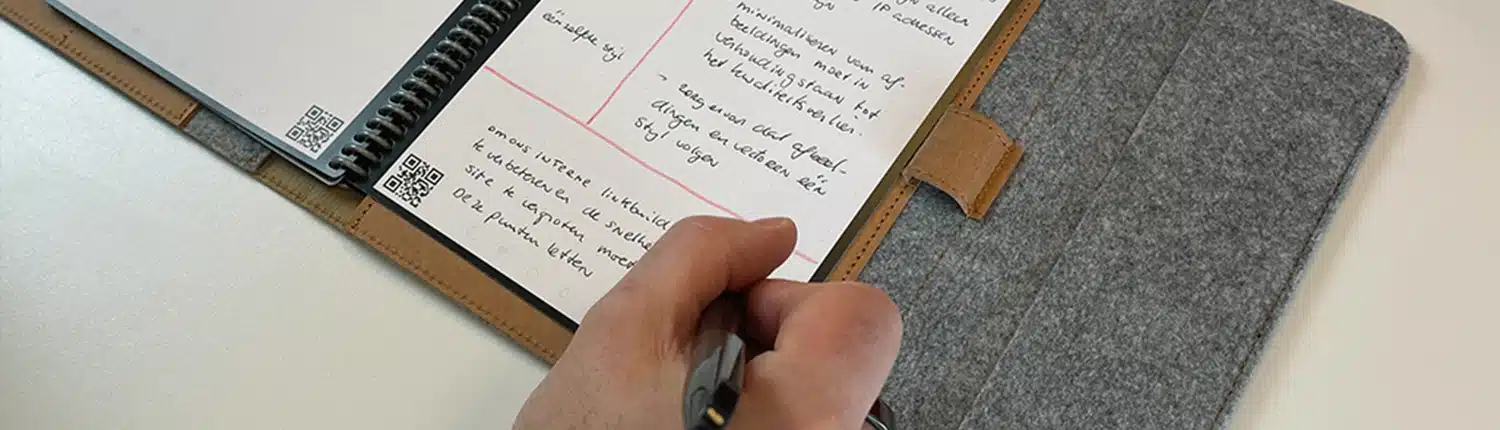 éénzelfde stijl
alleen
IP adressen
minimaliseren van af-
beeldingen moet in
verhouding staan tot
het kwaliteitsverlies.
- zorg ervoor dat afbeel-
dingen en vectoren één
stijl volgen
om ons INTERNE linkbuild
te verbeteren en de snelhe
site te vergroten moet
Deze punten letten